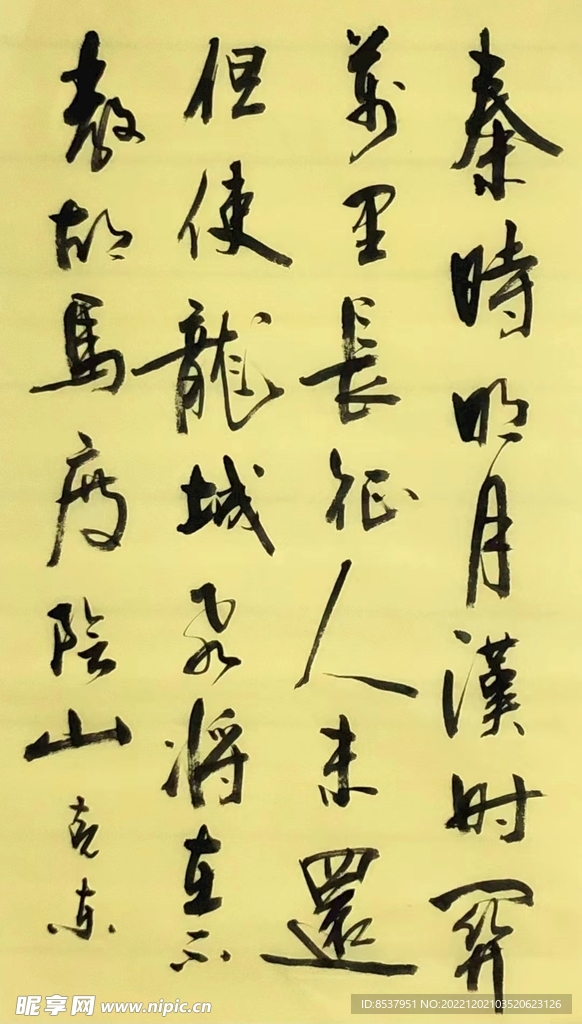 秦時明月漢时関
萬里長征人未還
但使龍城飛将在不
教胡馬度陰山 克东
昵享网 www.nipic.cn
ID:8537951 NO:20221202103520623126